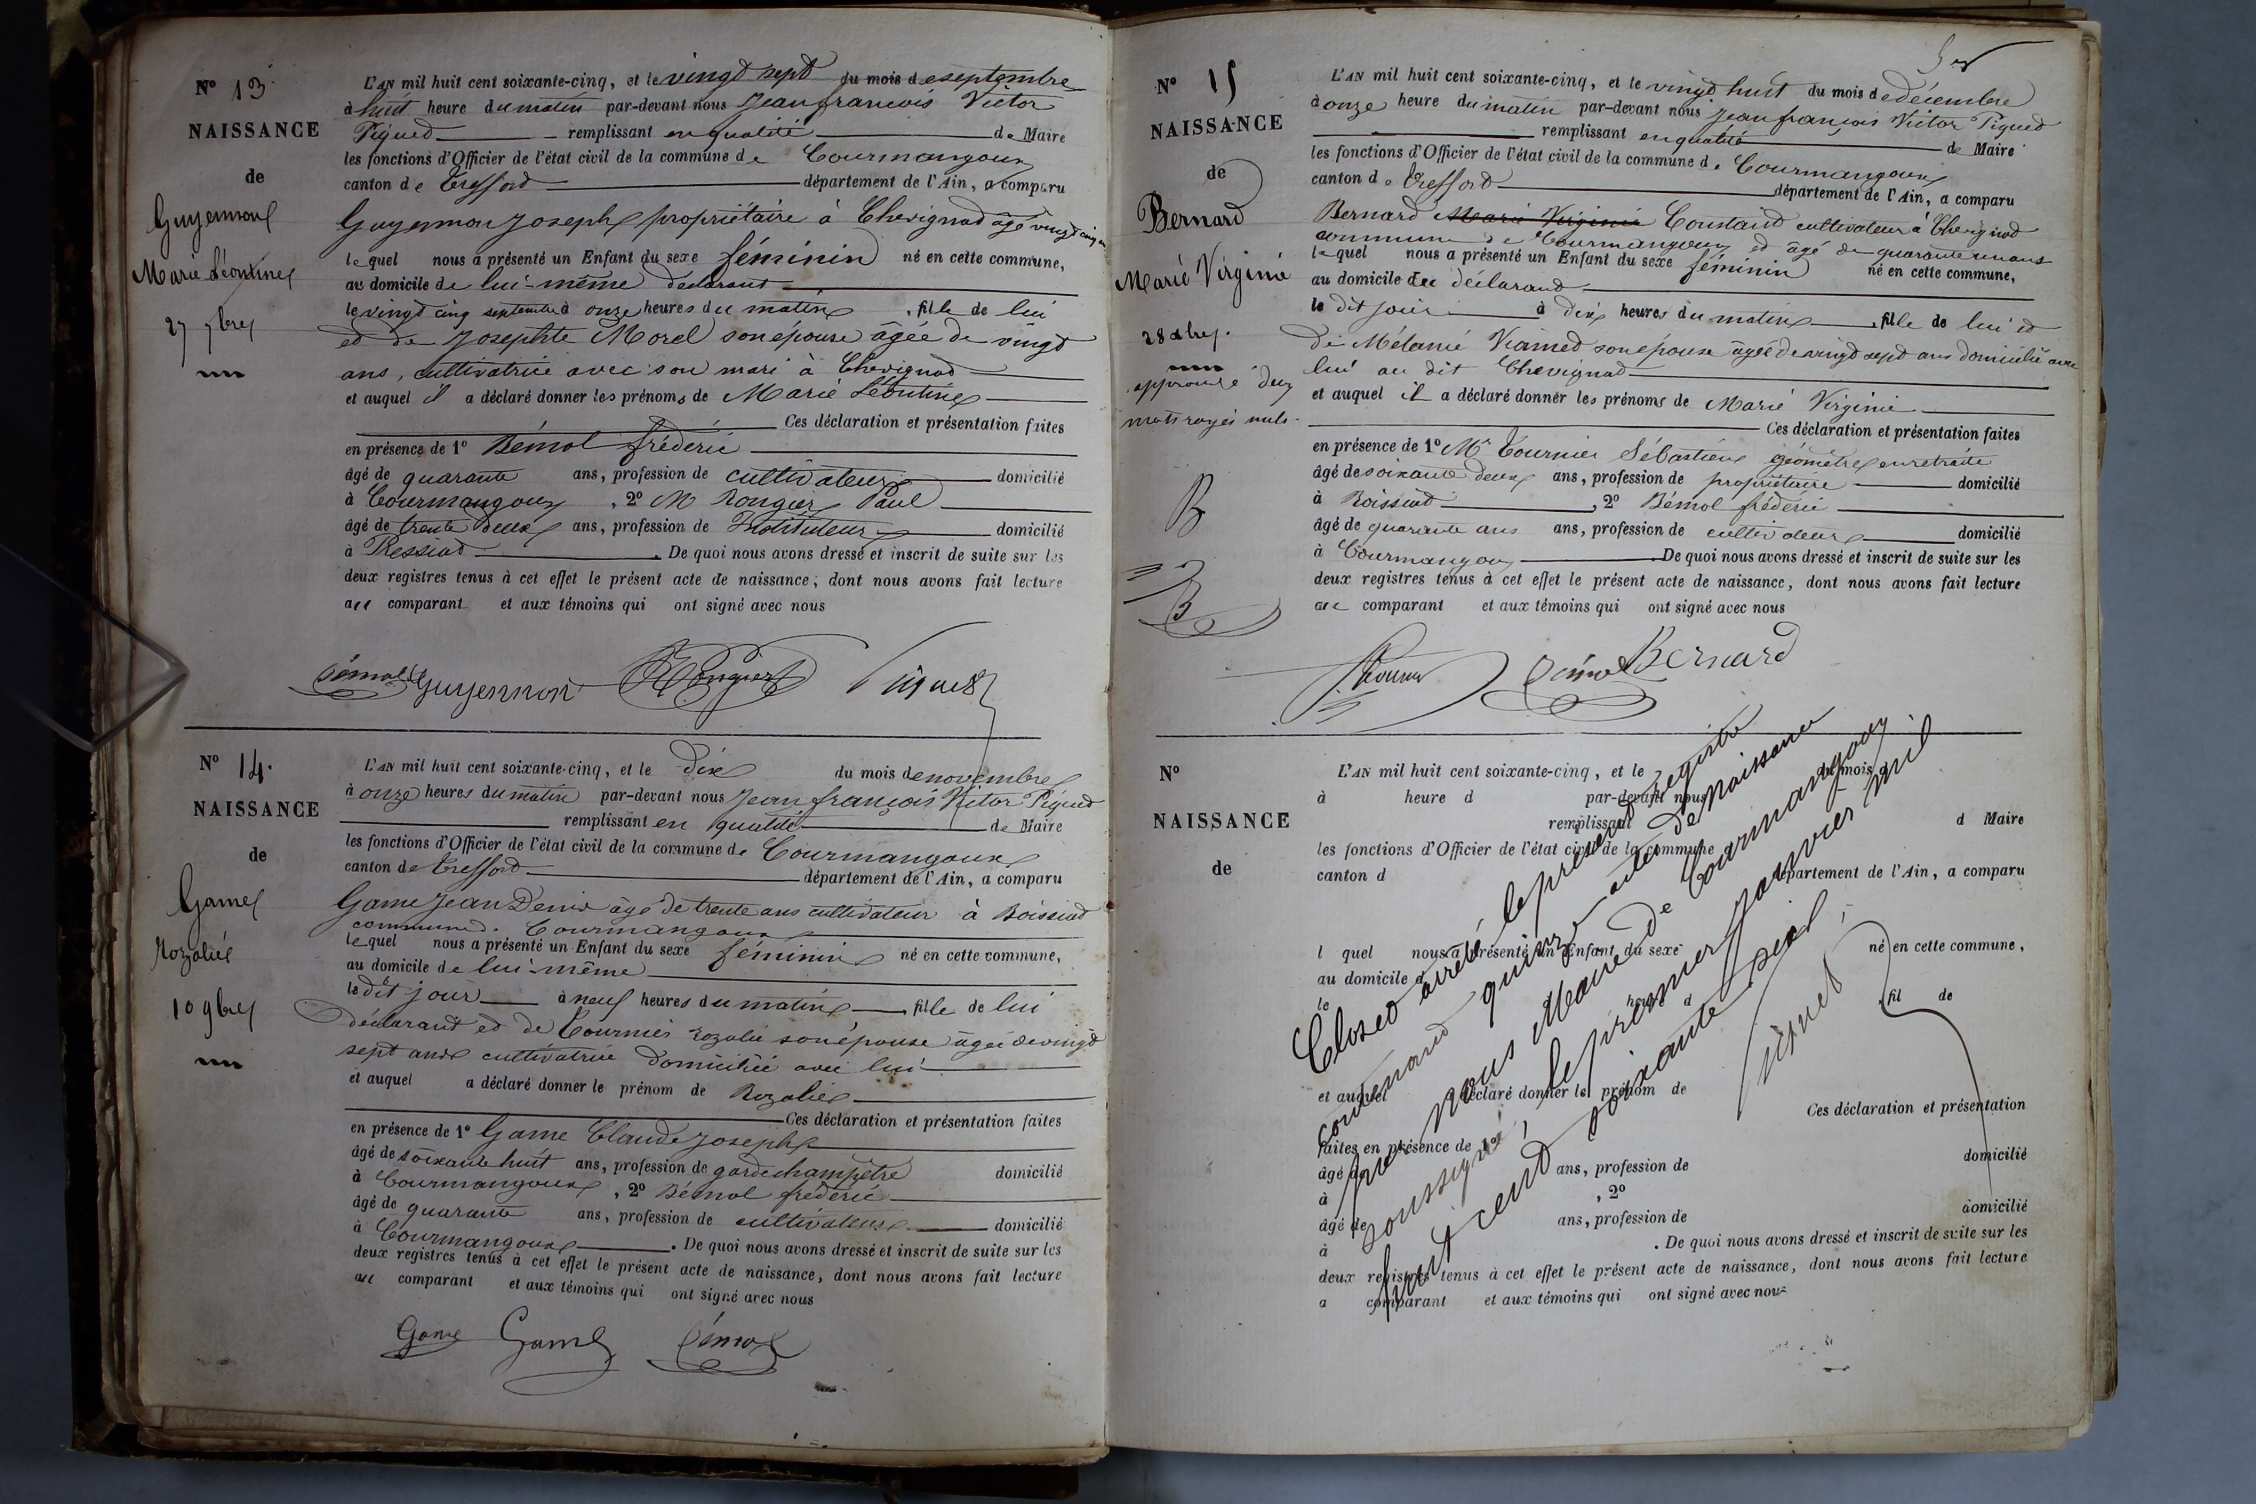 N° 13
NAISSANCE
de
Guyennon
Marie Léontine
27 7bre
L'AN mil huit cent soixante-cinq, et le vingt sept du mois de septembre
à huit heure du matin par-devant nous Jean françois Victor
Piquet remplissant en qualité de Maire
les fonctions d'Officier de l'état civil de la commune de Courmangoux
canton de Treffort département de l'Ain, a comparu
Guyennon Joseph propriétaire à Chevignat âgé vingt cinq ans
lequel nous a présenté un Enfant du sexe féminin né en cette commune,
au domicile de lui-même déclarant
le vingt cinq septembre à onze heures du matin, fille de lui
et de Josephte Morel son épouse âgée de vingt
ans, cultivatrice avec son mari à Chevignat
et auquel il a déclaré donner les prénoms de Marie Léontine
Ces déclaration et présentation faites
en présence de 1° Bémol frédéric
âgé de quarante ans, profession de cultivateur domicilié
à Courmangoux, 2° M Rongier Paul
âgé de trente deux ans, profession de Instituteur domicilié
à Pressiat. De quoi nous avons dressé et inscrit de suite sur les
deux registres tenus à cet effet le présent acte de naissance, dont nous avons fait lecture
au comparant et aux témoins qui ont signé avec nous
Bémol Guyennon Rongier Piquet
N° 14.
NAISSANCE
de
Game
Rozalie
10 9bre
L'AN mil huit cent soixante-cinq, et le dix du mois de novembre
à onze heures du matin par-devant nous Jean françois Victor Piquet
remplissant en qualité de Maire
les fonctions d'Officier de l'état civil de la commune de Courmangoux
canton de Treffort département de l'Ain, a comparu
Game Jean Denis âgé de trente ans cultivateur à Roissiat
commune d. Courmangoux
lequel nous a présenté un Enfant du sexe féminin né en cette commune,
au domicile de lui-même
le dit jour à neuf heures du matin, fille de lui
déclarant et de Tournier Rozalie son épouse âgée de vingt
sept ans cultivatrice domiciliée avec lui
et auquel a déclaré donner le prénom de Rozalie
Ces déclaration et présentation faites
en présence de 1° Game Claude Joseph
âgé de soixante huit ans, profession de garde champêtre domicilié
à Courmangoux, 2° Bémol frédéric
âgé de quarante ans, profession de cultivateur domicilié
à Courmangoux. De quoi nous avons dressé et inscrit de suite sur les
deux registres tenus à cet effet le présent acte de naissance, dont nous avons fait lecture
au comparant et aux témoins qui ont signé avec nous
Game Game Bémol
N° 15
NAISSANCE
de
Bernard
Marie Virginie
28 Xbre.
approuvé deux
mots rayés nuls.
B
B
L'AN mil huit cent soixante-cinq, et le vingt huit du mois de décembre
à onze heure du matin par-devant nous Jean françois Victor Piquet
remplissant en qualité de Maire
les fonctions d'Officier de l'état civil de la commune d. Courmangoux
canton de Treffort département de l'Ain, a comparu
Bernard Marie Virginie Constant cultivateur à Chevignat
commune de Courmangoux et âgé de quarante un ans
lequel nous a présenté un Enfant du sexe féminin né en cette commune,
au domicile du déclarant
le dit jour à dix heures du matin, fille de lui et
de Mélanie son épouse âgée de vingt sept ans domiciliée avec
lui au dit Chevignat
et auquel il a déclaré donner les prénoms de Marie Virginie
Ces déclaration et présentation faites
en présence de 1° Mr Tournier Sébastien géomètre en retraite
âgé de soixante deux ans, profession de propriétaire domicilié
à Roissiat, 2° Bémol frédéric
âgé de quarante ans ans, profession de cultivateur domicilié
à Courmangoux. De quoi nous avons dressé et inscrit de suite sur les
deux registres tenus à cet effet le présent acte de naissance, dont nous avons fait lecture
au comparant et aux témoins qui ont signé avec nous
Bémol Bernard
N°
NAISSANCE
de
L'AN mil huit cent soixante-cinq, et le du mois d
à heure d par-devant nous
remplissant d Maire
les fonctions d'Officier de l'état civil de la commune d
canton d département de l'Ain, a comparu
l quel nous a présenté un Enfant du sexe né en cette commune,
au domicile d
le heure d , fil de
et auquel a déclaré donner le prénom de
Ces déclaration et présentation
faites en présence de 1°
âgé de ans, profession de domicilié
à , 2°
âgé de ans, profession de domicilié
à . De quoi nous avons dressé et inscrit de suite sur les
deux registres tenus à cet effet le présent acte de naissance, dont nous avons fait lecture
a comparant et aux témoins qui ont signé avec nous
Clos et arrêté le présent registre
contenant quinze actes de naissance
par nous Maire de Courmangoux
soussigné, le premier janvier mil
huit cent soixante six.
Piquet